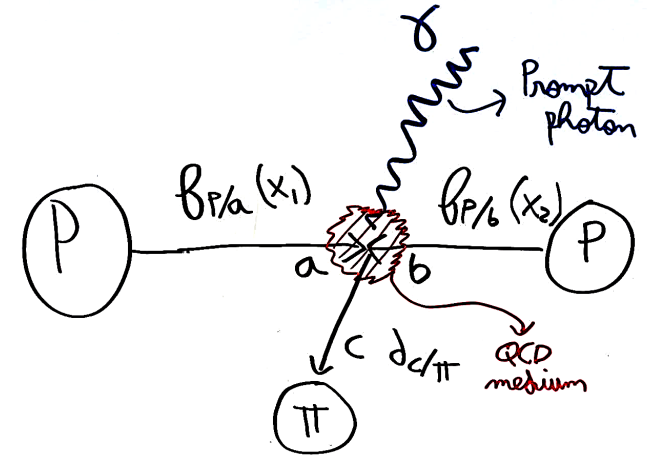 γ
Prompt
photon
f_{P/a}(x₁)
f_{P/b}(x₂)
P
P
a
b
c
d_{c/π}
QCD
medium
π